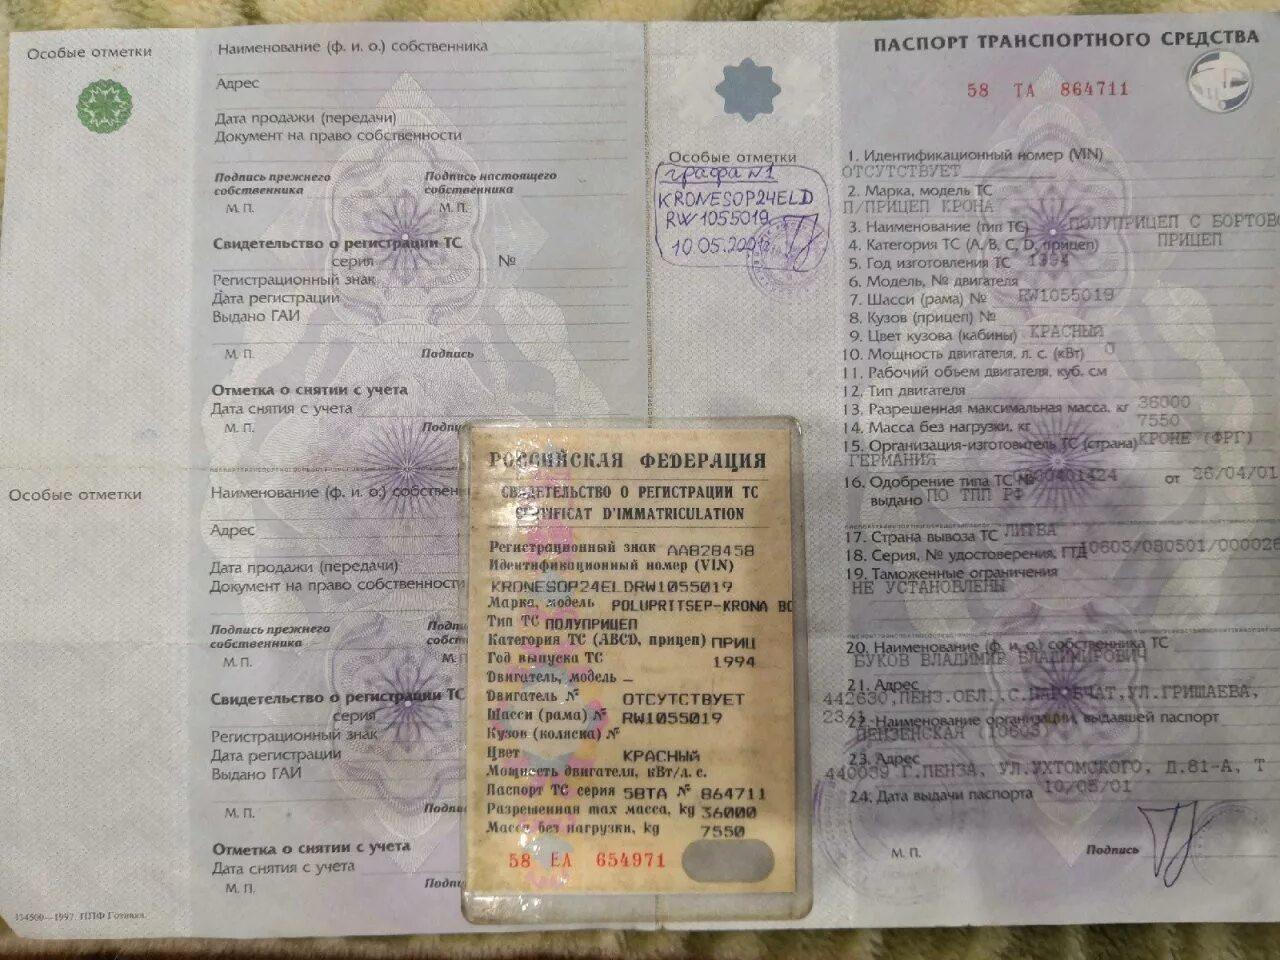 Особые отметки
Наименование (ф. и. о.) собственника
Адрес
Дата продажи (передачи)
Документ на право собственности
Подпись прежнего собственника
Подпись настоящего собственника
М. П.
М. П.
Свидетельство о регистрации ТС
серия №
Регистрационный знак
Дата регистрации
Выдано ГАИ
М. П. Подпись
Отметка о снятии с учета
Дата снятия с учета
М. П.
Особые отметки
Наименование (ф. и. о.)
Адрес
Дата продажи (передачи)
Документ на право собственности
Подпись прежнего
собственника
М. П.
Свидетельство о регистрации ТС
серия
Регистрационный знак
Дата регистрации
Выдано ГАИ
М. П.
Отметка о снятии с учета
Дата снятия с учета
М. П.
Особые отметки
графа №1
KRONESOP24ELD
RW1055019
ПАСПОРТ ТРАНСПОРТНОГО СРЕДСТВА
58 ТА 864711
1. Идентификационный номер (VIN)
ОТСУТСТВУЕТ
2. Марка, модель ТС
П/ПРИЦЕП КРОНА
3. Наименование (тип ТС) ПОЛУПРИЦЕП С БОРТОВ
4. Категория ТС (А, В, С, D, прицеп) ПРИЦЕП
5. Год изготовления ТС 1994
6. Модель, № двигателя
7. Шасси (рама) № RW1055019
8. Кузов (прицеп) №
9. Цвет кузова (кабины) КРАСНЫЙ
10. Мощность двигателя, л. с. (кВт) 0
11. Рабочий объем двигателя, куб. см
12. Тип двигателя
13. Разрешенная максимальная масса, кг 36000
14. Масса без нагрузки, кг 7550
15. Организация-изготовитель ТС (страна) КРОНЕ (ФРГ)
ГЕРМАНИЯ
16. Одобрение типа ТС № от 26/04/01
выдано ПО ТПП РФ
17. Страна вывоза ТС ЛИТВА
18. Серия, № удостоверения, ГТД 10603/080501/000028
19. Таможенные ограничения
НЕ УСТАНОВЛЕНЫ
20. Наименование (ф. и. о.) собственника ТС
БУКОВ ВЛАДИМИР ВЛАДИМИРОВИЧ
21. Адрес
442630, ПЕНЗ.ОБЛ., С.НАРОВЧАТ, УЛ.ГРИШАЕВА,
22. Наименование организации, выдавшей паспорт
ПЕНЗЕНСКАЯ (10603)
23. Адрес
440039 Г.ПЕНЗА, УЛ.УХТОМСКОГО, Д.81-А, Т
24. Дата выдачи паспорта 10/05/01
М. П. Подпись
РОССИЙСКАЯ ФЕДЕРАЦИЯ
СВИДЕТЕЛЬСТВО О РЕГИСТРАЦИИ ТС
CERTIFICAT D'IMMATRICULATION
Регистрационный знак АА828458
Идентификационный номер (VIN)
KRONESOP24ELDRW1055019
Марка, модель POLUPRITSEP-KRONA BO
Тип ТС ПОЛУПРИЦЕП
Категория ТС (ABCD, прицеп) ПРИЦ
Год выпуска ТС 1994
Двигатель, модель –
Двигатель № ОТСУТСТВУЕТ
Шасси (рама) № RW1055019
Кузов (коляска) №
Цвет КРАСНЫЙ
Мощность двигателя, кВт/л. с.
Паспорт ТС серия 58ТА № 864711
Разрешенная max масса, kg 36000
Масса без нагрузки, kg 7550
58 ЕА 654971